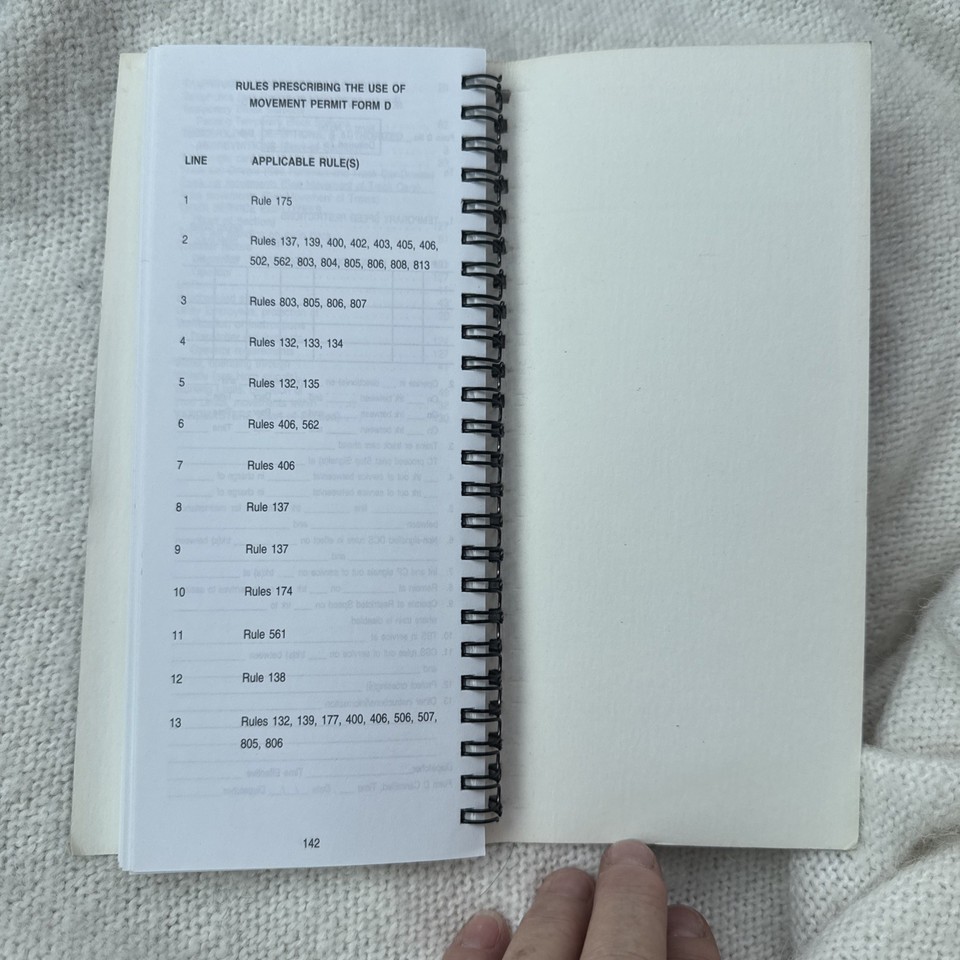 RULES PRESCRIBING THE USE OF
MOVEMENT PERMIT FORM D
LINE APPLICABLE RULE(S)
1 Rule 175
2 Rules 137, 139, 400, 402, 403, 405, 406,
502, 562, 803, 804, 805, 806, 808, 813
3 Rules 803, 805, 806, 807
4 Rules 132, 133, 134
5 Rules 132, 135
6 Rules 406, 562
7 Rules 406
8 Rule 137
9 Rule 137
10 Rules 174
11 Rule 561
12 Rule 138
13 Rules 132, 139, 177, 400, 406, 506, 507,
805, 806
142